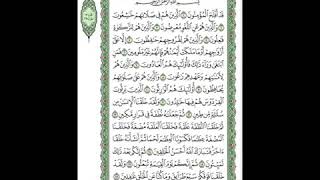 بِسْمِ ٱللَّهِ ٱلرَّحْمَٰنِ ٱلرَّحِيمِ
قَدْ أَفْلَحَ ٱلْمُؤْمِنُونَ ١ ٱلَّذِينَ هُمْ فِي صَلَاتِهِمْ خَٰشِعُونَ
٢ وَٱلَّذِينَ هُمْ عَنِ ٱللَّغْوِ مُعْرِضُونَ ٣ وَٱلَّذِينَ هُمْ لِلزَّكَوٰةِ
فَٰعِلُونَ ٤ وَٱلَّذِينَ هُمْ لِفُرُوجِهِمْ حَٰفِظُونَ ٥ إِلَّا عَلَىٰٓ
أَزْوَٰجِهِمْ أَوْ مَا مَلَكَتْ أَيْمَٰنُهُمْ فَإِنَّهُمْ غَيْرُ مَلُومِينَ ٦ فَمَنِ ٱبْتَغَىٰ
وَرَآءَ ذَٰلِكَ فَأُو۟لَٰٓئِكَ هُمُ ٱلْعَادُونَ ٧ وَٱلَّذِينَ هُمْ
لِأَمَٰنَٰتِهِمْ وَعَهْدِهِمْ رَٰعُونَ ٨ وَٱلَّذِينَ هُمْ عَلَىٰ صَلَوَٰتِهِمْ
يُحَافِظُونَ ٩ أُو۟لَٰٓئِكَ هُمُ ٱلْوَٰرِثُونَ ١٠ ٱلَّذِينَ يَرِثُونَ
ٱلْفِرْدَوْسَ هُمْ فِيهَا خَٰلِدُونَ ١١ وَلَقَدْ خَلَقْنَا ٱلْإِنسَٰنَ مِن
سُلَٰلَةٍ مِّن طِينٍ ١٢ ثُمَّ جَعَلْنَٰهُ نُطْفَةً فِي قَرَارٍ مَّكِينٍ ١٣ ثُمَّ
خَلَقْنَا ٱلنُّطْفَةَ عَلَقَةً فَخَلَقْنَا ٱلْعَلَقَةَ مُضْغَةً فَخَلَقْنَا
ٱلْمُضْغَةَ عِظَٰمًا فَكَسَوْنَا ٱلْعِظَٰمَ لَحْمًا ثُمَّ أَنشَأْنَٰهُ خَلْقًا
ءَاخَرَ فَتَبَارَكَ ٱللَّهُ أَحْسَنُ ٱلْخَٰلِقِينَ ١٤ ثُمَّ إِنَّكُم بَعْدَ ذَٰلِكَ
لَمَيِّتُونَ ١٥ ثُمَّ إِنَّكُمْ يَوْمَ ٱلْقِيَٰمَةِ تُبْعَثُونَ ١٦ وَلَقَدْ
خَلَقْنَا فَوْقَكُمْ سَبْعَ طَرَآئِقَ وَمَا كُنَّا عَنِ ٱلْخَلْقِ غَٰفِلِينَ ١٧